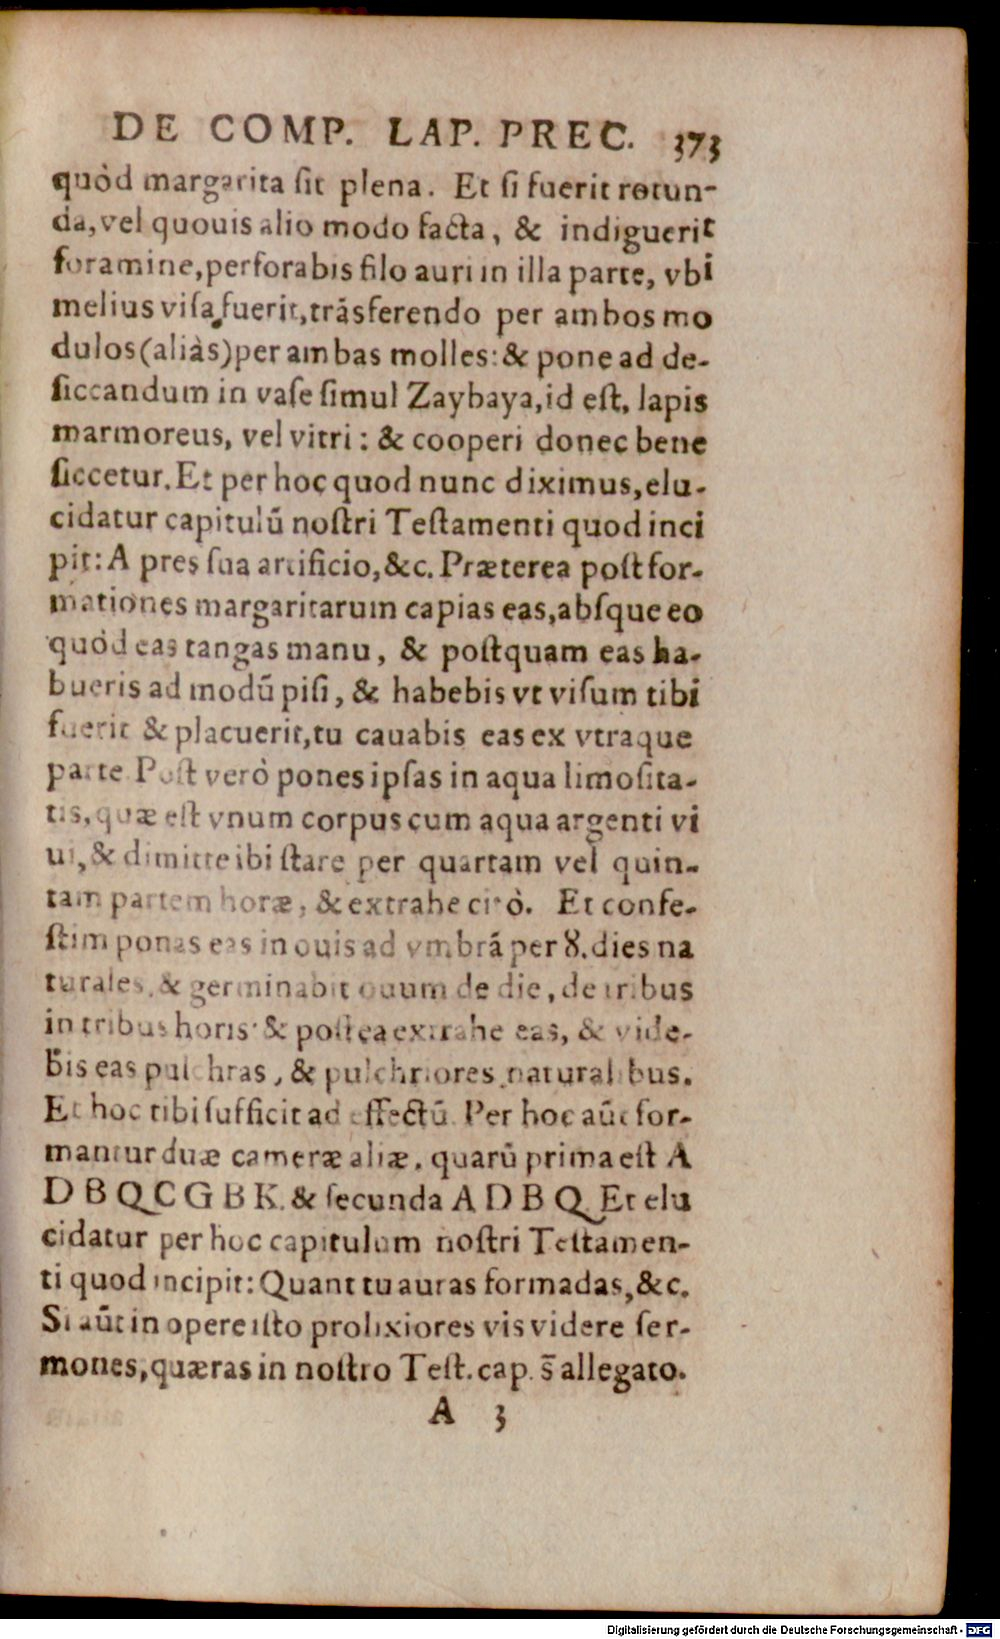 DE COMP. LAP. PREC. 373
quòd margarita sit plena. Et si fuerit rotun-
da, vel quouis alio modo facta, & indiguerit
foramine, perforabis filo auri in illa parte, vbi
melius visa fuerit, trāsferendo per ambos mo
dulos (aliàs) per ambas molles: & pone ad de-
siccandum in vase simul Zaybaya, id est, lapis
marmoreus, vel vitri: & cooperi donec bene
siccetur. Et per hoc quod nunc diximus, elu-
cidatur capitulū nostri Testamenti quod inci
pit: A pres sua artificio, &c. Præterea post for-
mationes margaritarum capias eas, absque eo
quòd eas tangas manu, & postquam eas ha-
bueris ad modū pisi, & habebis vt visum tibi
fuerit & placuerit, tu cauabis eas ex vtraque
parte Post verò pones ipsas in aqua limosita-
tis, quæ est vnum corpus cum aqua argenti vi
ui, & dimitte ibi stare per quartam vel quin-
tam partem horæ, & extrahe citò. Et confe-
stim ponas eas in ouis ad vmbrā per 8. dies na
turales, & germinabit ouum de die, de tribus
in tribus horis: & postea extrahe eas, & vide-
bis eas pulchras, & pulchriores naturalibus.
Et hoc tibi sufficit ad effectū. Per hoc aūt for-
mantur duæ cameræ aliæ, quarū prima est A
D B Q C G B K. & secunda A D B Q. Et elu
cidatur per hoc capitulum nostri Testamen-
ti quod incipit: Quant tu auras formadas, &c.
Si aūt in opere isto prolixiores vis videre ser-
mones, quæras in nostro Test. cap. s̄ allegato.
A 3
Digitalisierung gefördert durch die Deutsche Forschungsgemeinschaft - DFG